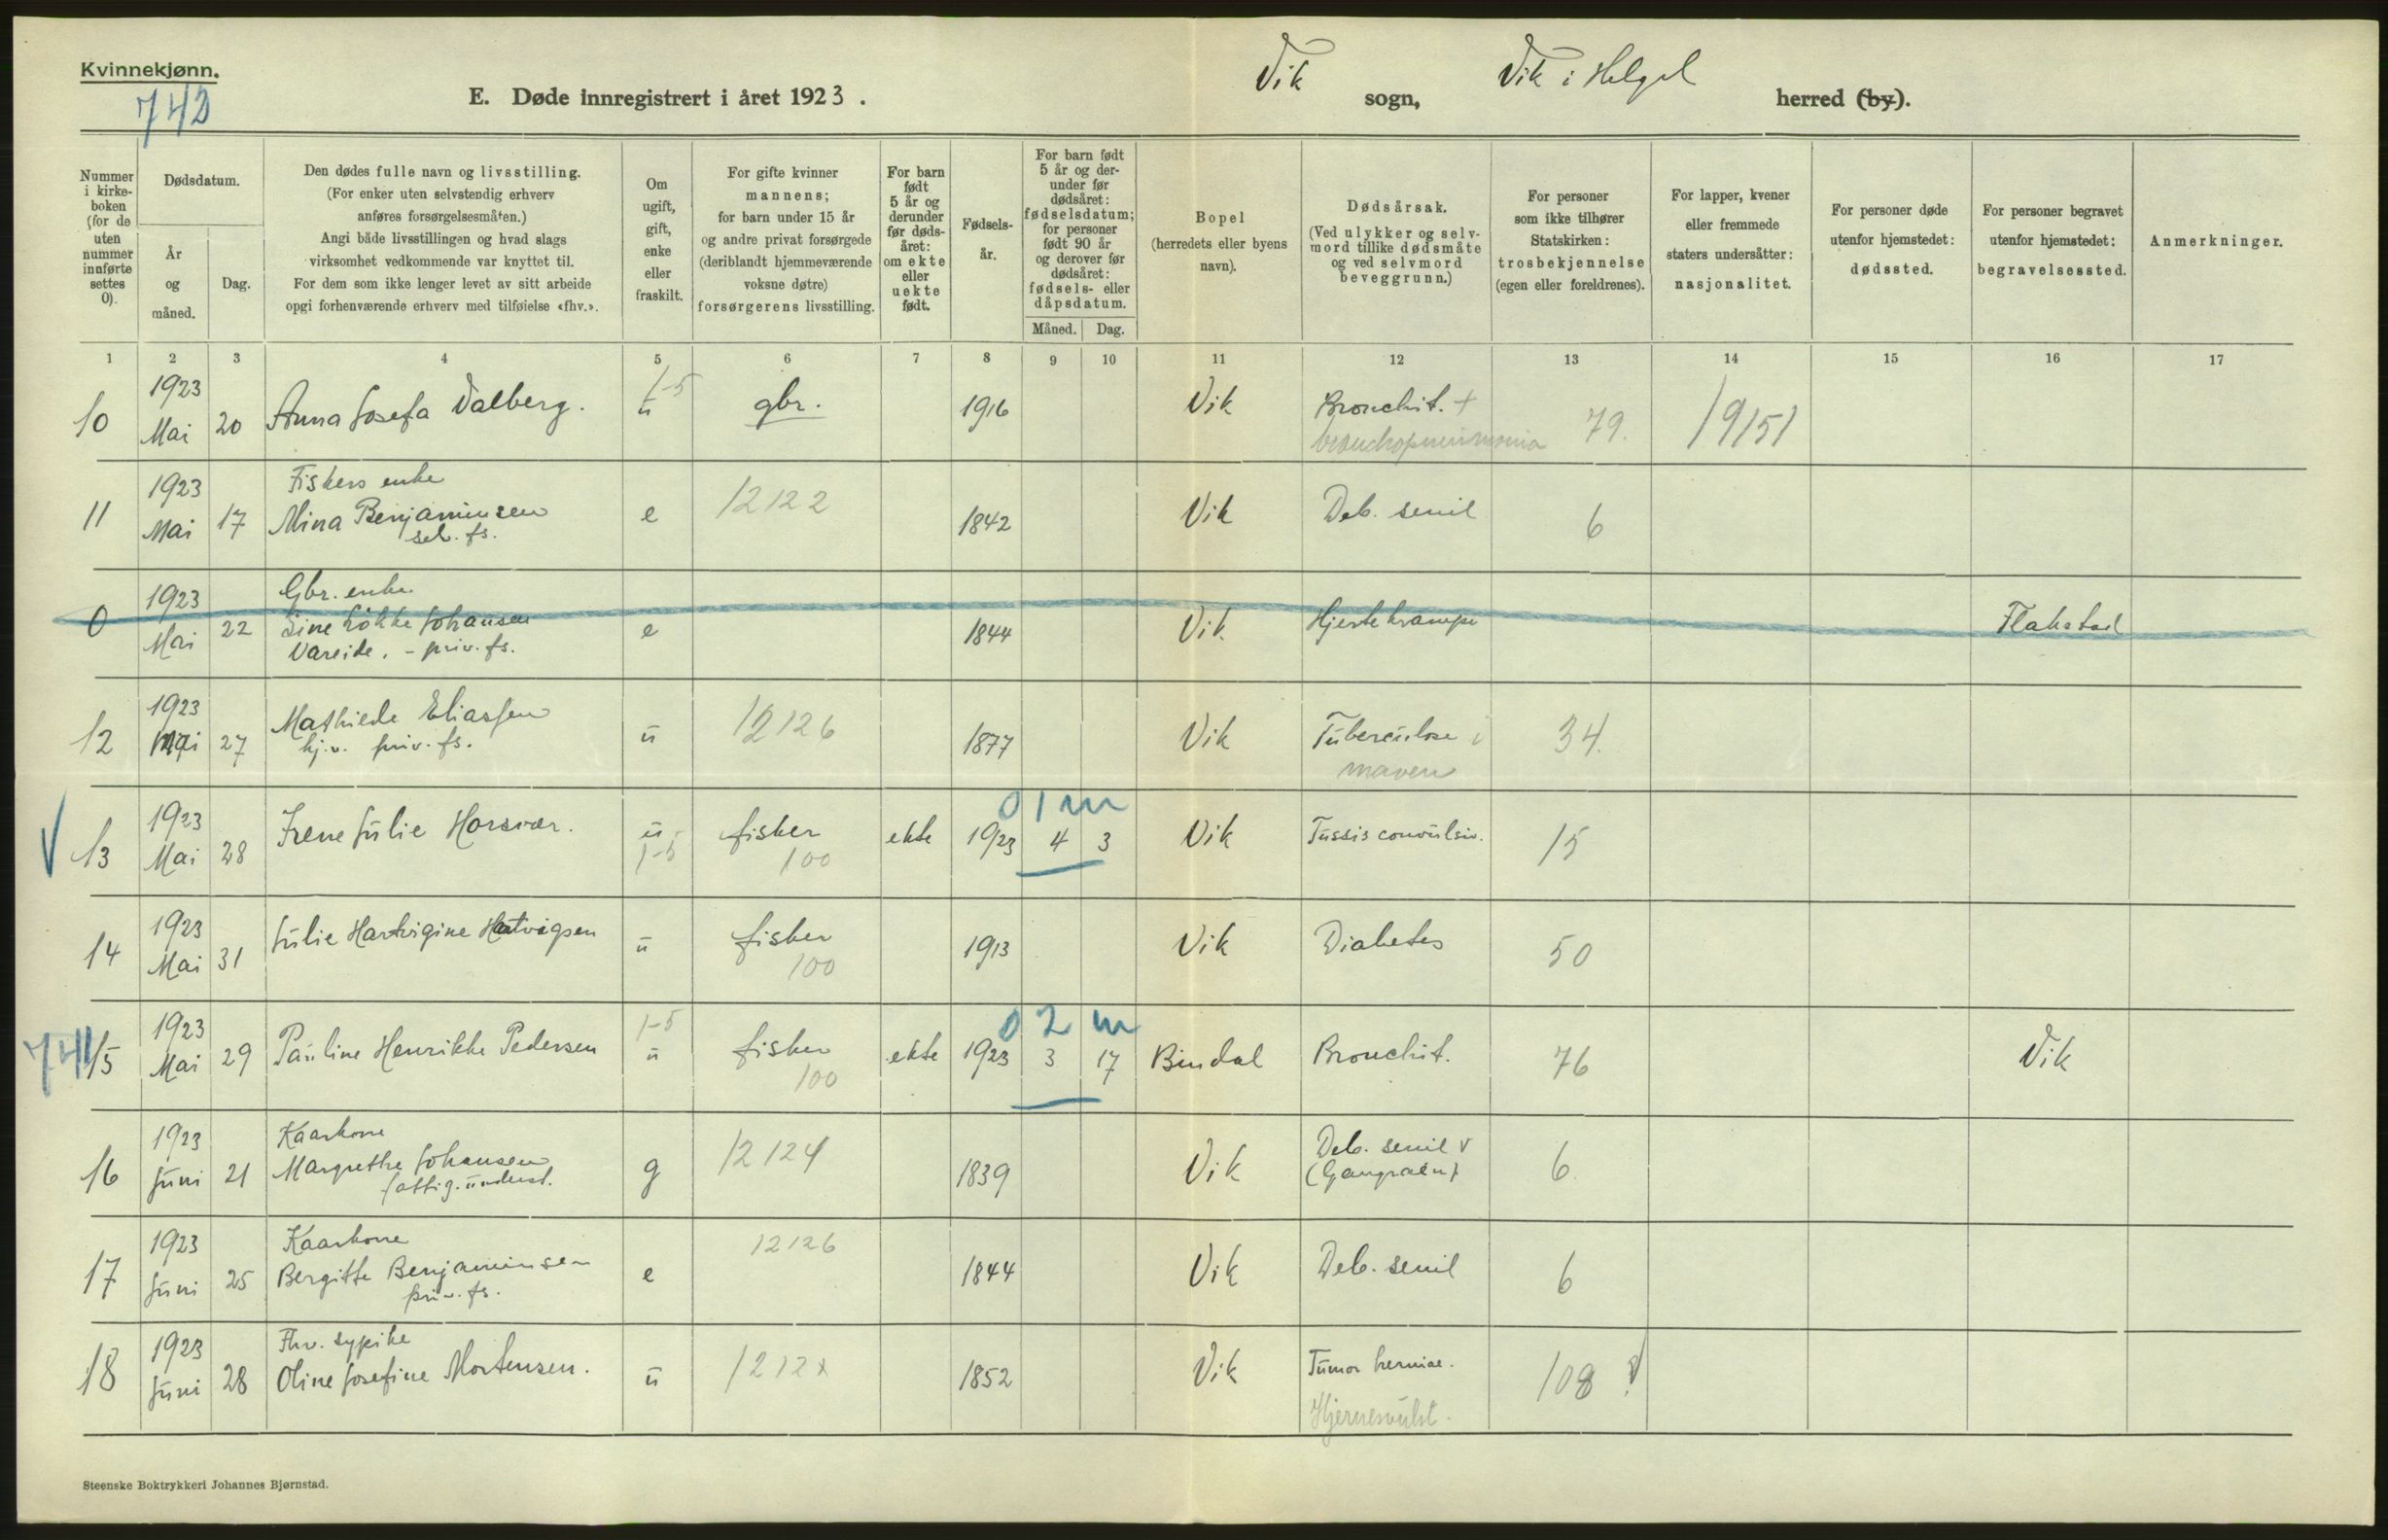 Kvinnekjønn.
742
E. Døde innregistrert i året 1923.
Vik sogn, Vik i Helgel herred (by).
Nummer i kirke-boken (for de uten nummer innførte settes 0).
Dødsdatum.
År og måned.
Dag.
Den dødes fulle navn og livsstilling.
(For enker uten selvstendig erhverv anføres forsørgelsesmåten.)
Angi både livsstillingen og hvad slags virksomhet vedkommende var knyttet til.
For dem som ikke lenger levet av sitt arbeide opgi forhenværende erhverv med tilføielse «fhv.».
Om ugift, gift, enke eller fraskilt.
For gifte kvinner mannens; for barn under 15 år og andre privat forsørgede (deriblandt hjemmeværende voksne døtre) forsørgerens livsstilling.
For barn født 5 år og derunder før døds-året: om ekte eller uekte født.
Fødsels-år.
For barn født 5 år og der-under før dødsåret: fødselsdatum; for personer født 90 år og derover før dødsåret: fødsels- eller dåpsdatum.
Måned. Dag.
Bopel (herredets eller byens navn).
Dødsårsak. (Ved ulykker og selv-mord tillike dødsmåte og ved selvmord beveggrunn.)
For personer som ikke tilhører Statskirken: trosbekjennelse (egen eller foreldrenes).
For lapper, kvener eller fremmede staters undersåtter: nasjonalitet.
For personer døde utenfor hjemstedet: dødssted.
For personer begravet utenfor hjemstedet: begravelsessted.
Anmerkninger.
1 2 3 4 5 6 7 8 9 10 11 12 13 14 15 16 17
10 1923 Mai 20 Anna Josefa Dalberg. ü 1-5 gbr. 1916 Vik Bronchit. + bronchopneumonia 79. 19151
11 1923 Mai 17 Fiskers enke
Mina Benjaminsen
sel. fs. e 12122 1842 Vik Deb. senil 6
0 1923 Mai 22 Gbr. enke
Line Løkke Johansen
Vareide. - priv. fs. e 1844 Vik Hjertekrampe Flakstad
12 1923 Mai 27 Mathilde Eliassen
hj.v. priv. fs. ü 12126 1877 Vik Tüberculose i maven 34.
13 1923 Mai 28 Irene Jülie Horsvær. ü 1-5 fisker 100 ekte 1923 4 3 01m Vik Tüssis convülsiv. 15
14 1923 Mai 31 Jülie Hartvigine Hatvigsen ü fisker 100 1913 Vik Diabetes 50
741 15 1923 Mai 29 Paüline Henrikke Pedersen 1-5 ü fisker 100 ekte 1923 3 17 02m Bindal Bronchit. 76 Vik
16 1923 Jüni 21 Kaarkone
Margrethe Johansen
fattig.ünderst. g 12124 1839 Vik Deb. senil v
(Gangraen) 6.
17 1923 Jüni 25 Kaarkone
Bergitte Benjaminsen
priv. fs. e 12126 1844 Vik Deb. senil 6
18 1923 Jüni 28 Fhv. sypike
Oline Josefine Mortensen. ü 1212x 1852 Vik Tümor herniae.
Hjernesvülst. 108
Steenske Boktrykkeri Johannes Bjørnstad.